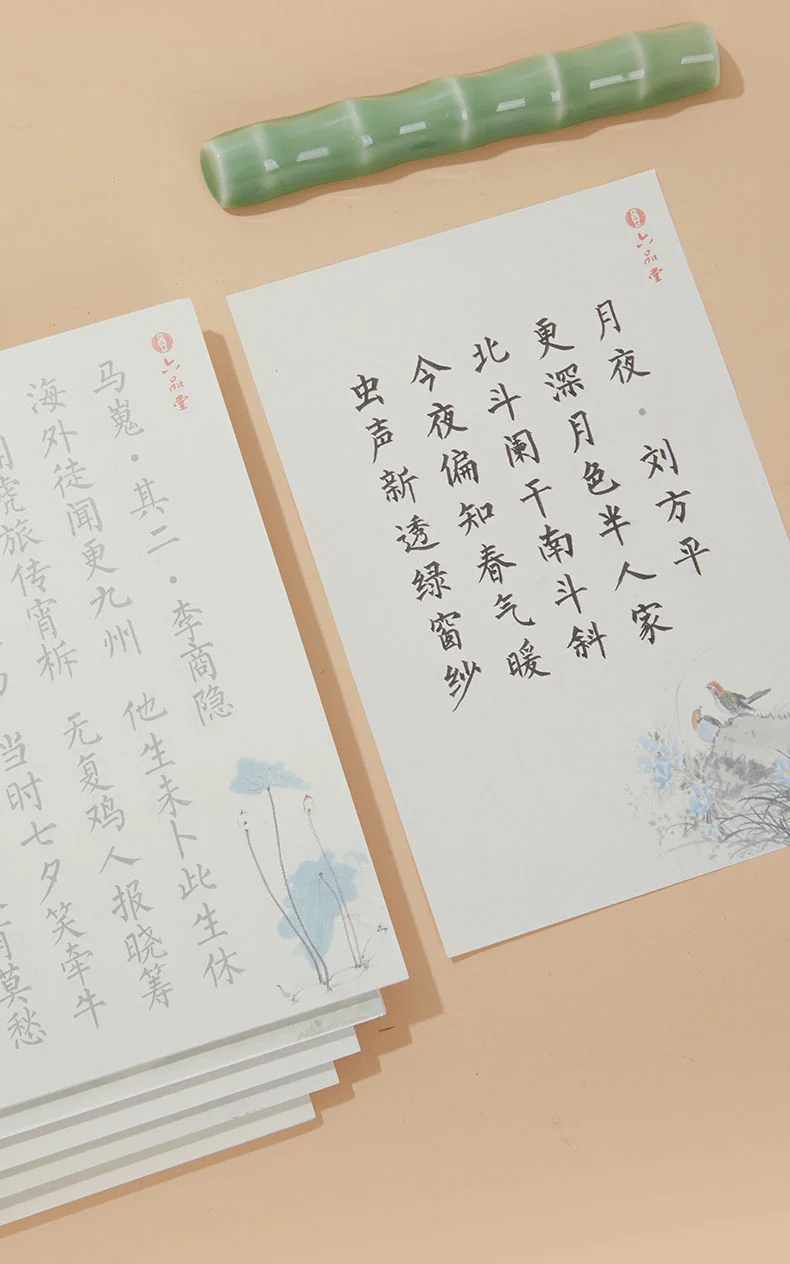 六品堂
月夜·刘方平
更深月色半人家
北斗阑干南斗斜
今夜偏知春气暖
虫声新透绿窗纱
六品堂
马嵬·其二·李商隐
海外徒闻更九州 他生未卜此生休
虎旅传宵柝 无复鸡人报晓筹
当时七夕笑牵牛
莫愁